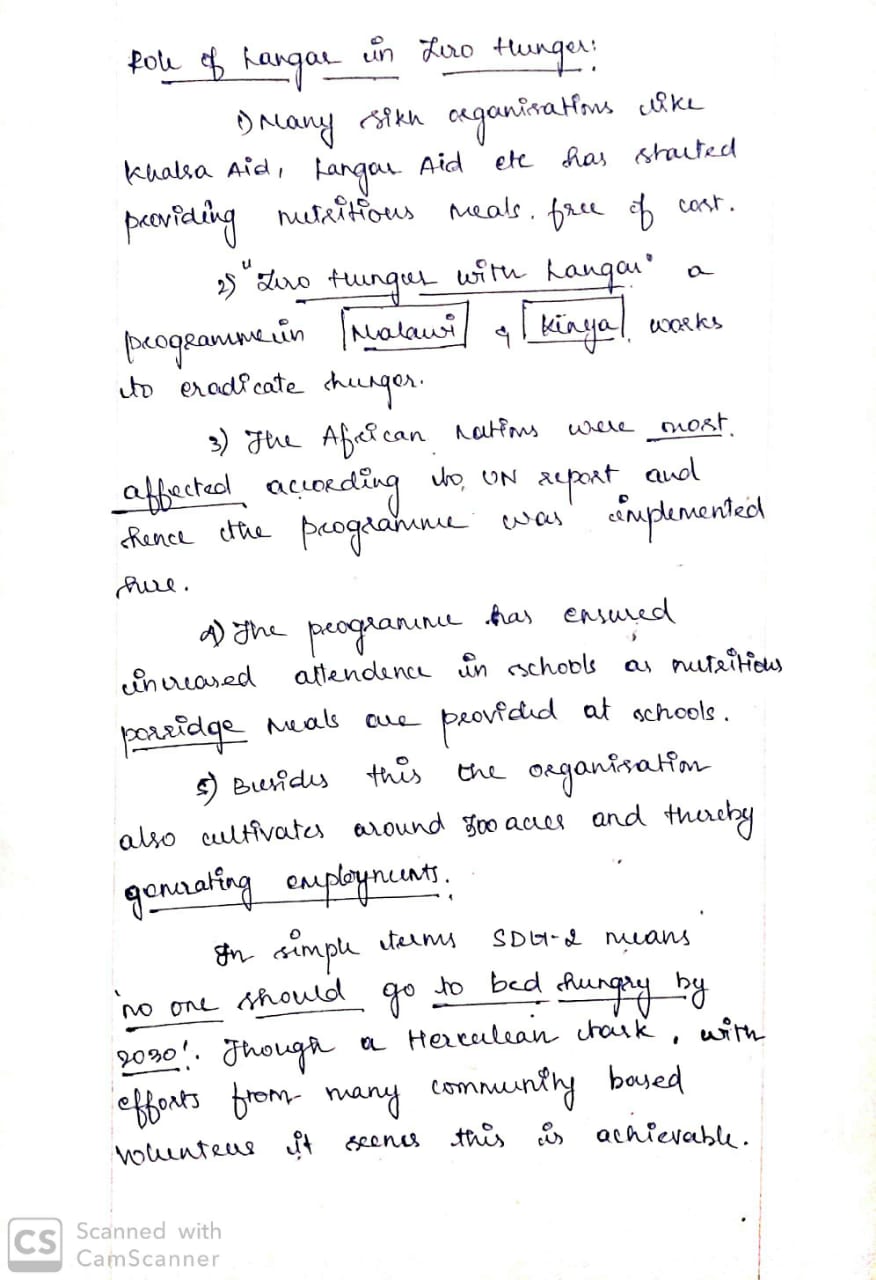 Role of Langar in Zero Hunger:
1) Many sikh organisations like
Khalsa Aid, Langar Aid etc has started
providing nutritious meals. free of cost.
2) "Zero Hunger with Langar" a
programme in Malawi & Kinya works
to eradicate hunger.
3) The African nations were most
affected according to, UN report and
hence the programme was implemented
here.
4) The programme has ensured
increased attendence in schools as nutritious
porridge meals are provided at schools.
5) Besides this the organisation
also cultivates around 300 acres and thereby
generating employments.
In simple terms SDG-2 means
'no one should go to bed hungry by
2030'. Though a Herculean task, with
efforts from many community based
volunteers it seems this is achievable.
CS Scanned with
CamScanner